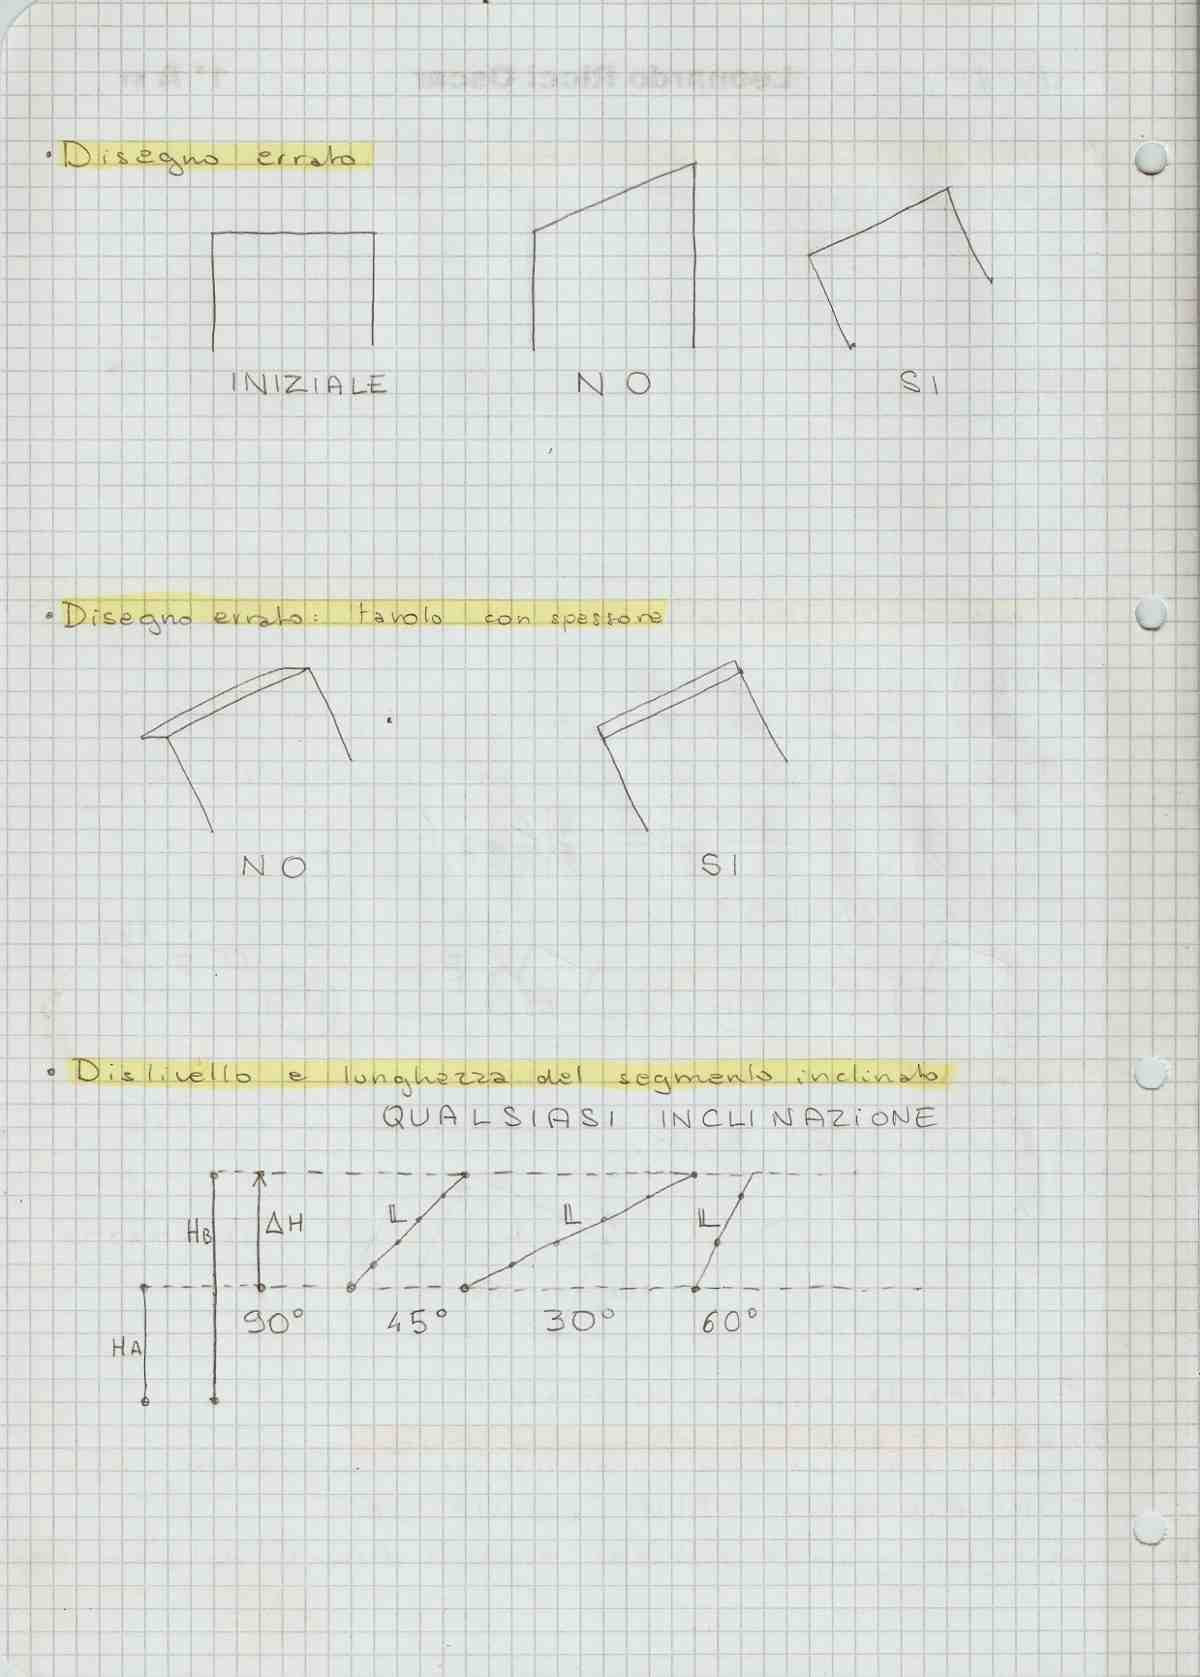 Leonardo Ricci Oscar
• Disegno errato
INIZIALE NO SI
• Disegno errato: tavolo con spessore
NO SI
• Dislivello e lunghezza del segmento inclinato
QUALSIASI INCLINAZIONE
HB ΔH L L L
90° 45° 30° 60°
HA